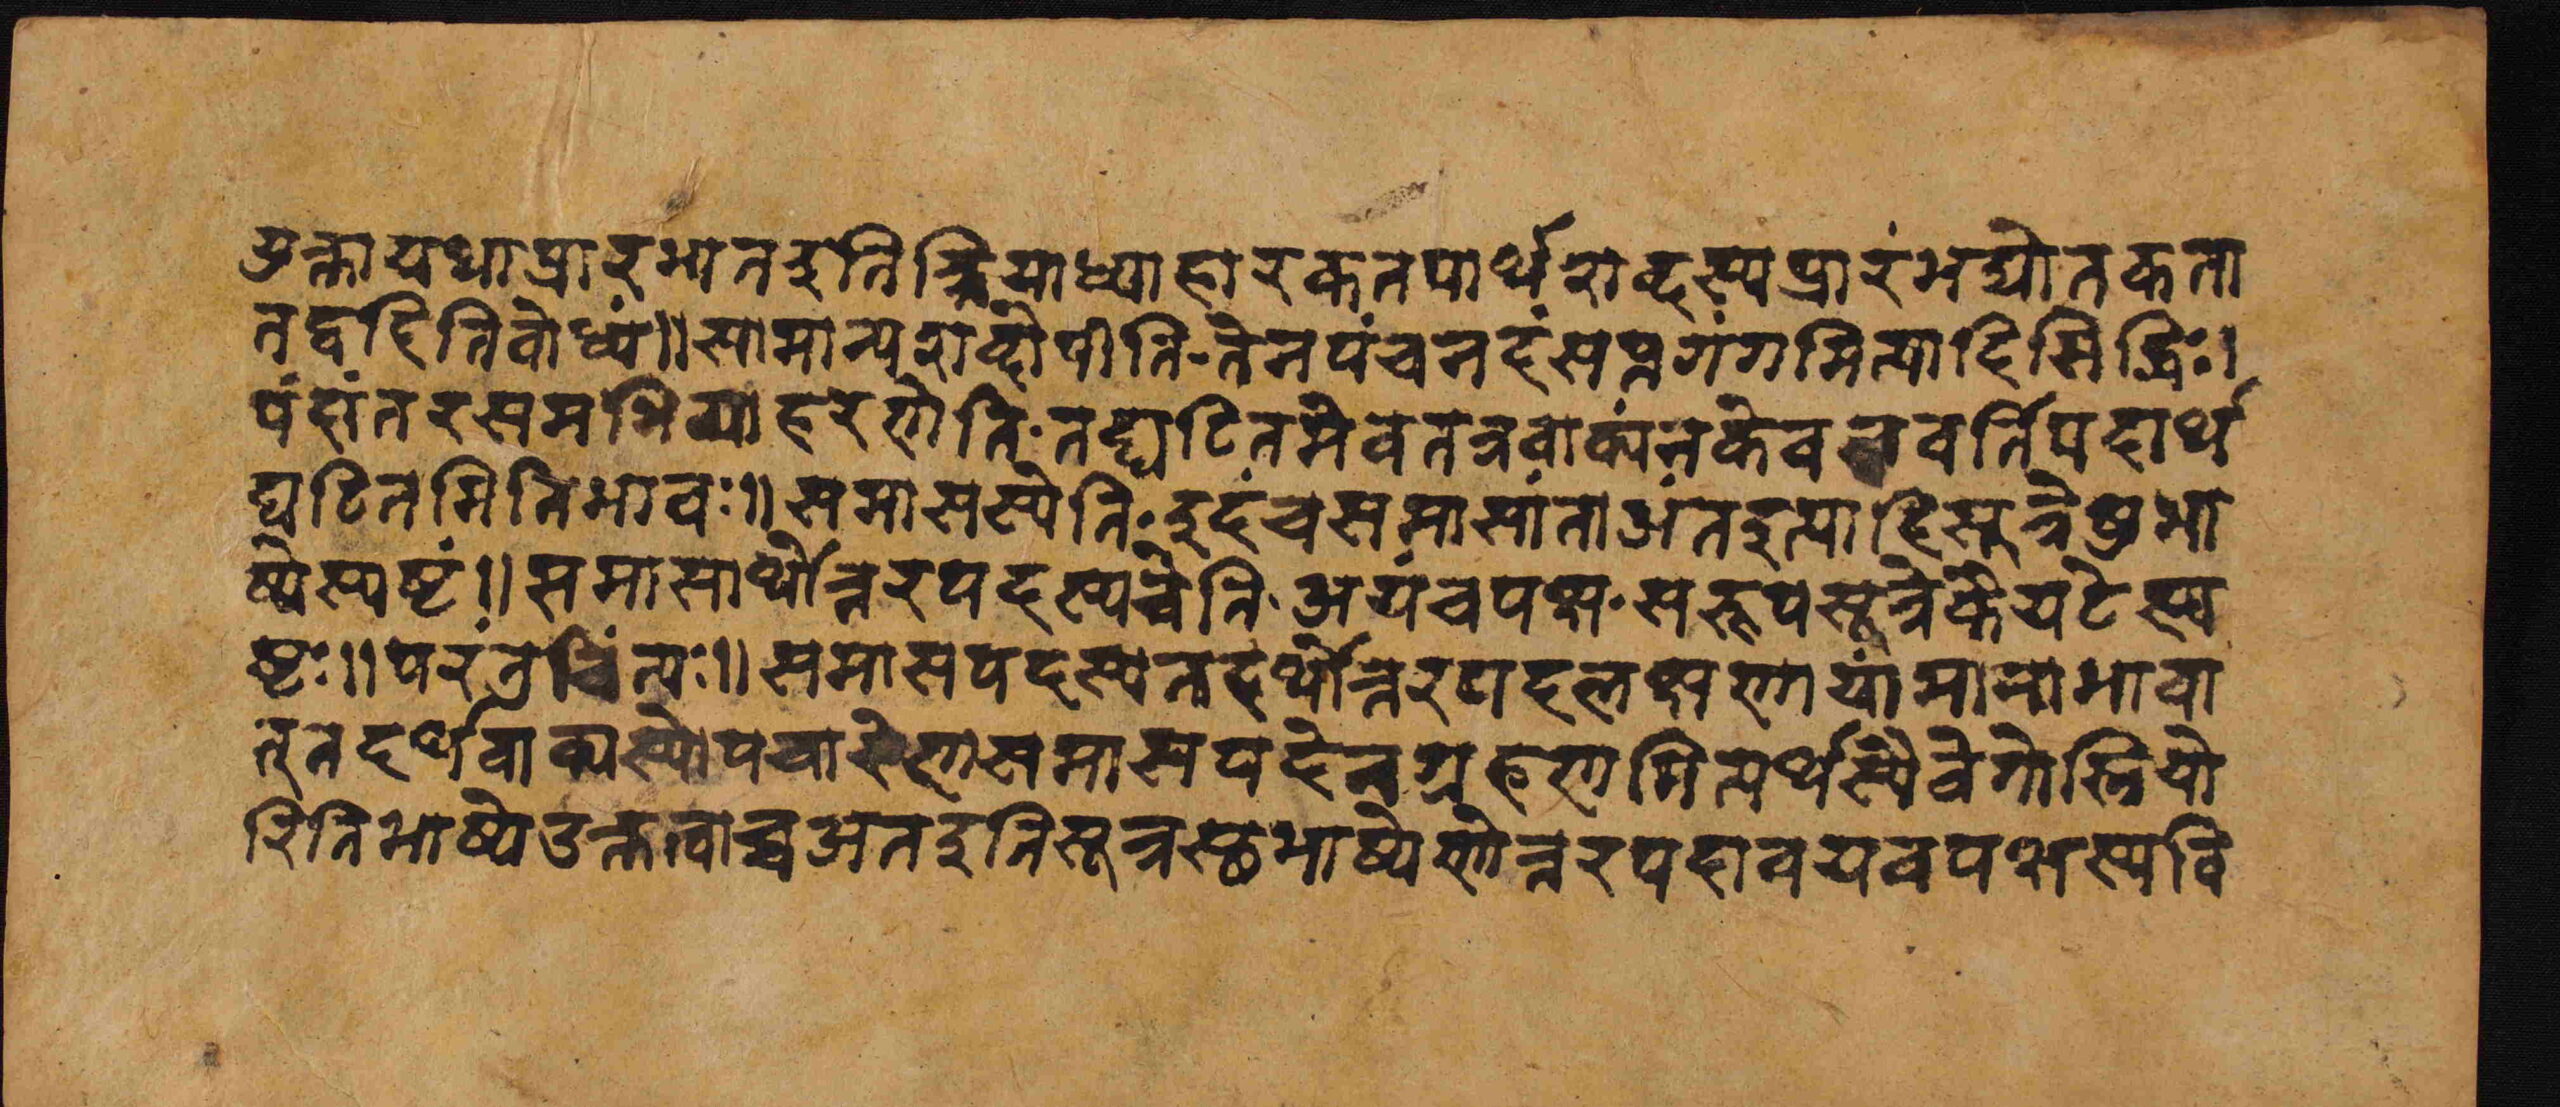 युक्ता यथा प्रारभात इति क्रियाध्याहारकतपार्थशब्दस्य प्रारंभद्योतकता
तद्वदिति बोध्यं ॥ सामान्यशब्दोपीति॰ तेन पंचनदं सप्तगंगमित्यादिसिद्धिः ।
पदांतरसमभिव्याहरेणेति॰ तद्घटितमेव तत्र वाक्यं न केवलवर्तिपदार्थ
घटितमिति भावः ॥ समासस्येति॰ इदं च समासांता अंत इत्यादिसूत्रेषु भा
ष्ये स्पष्टं ॥ समासार्थोत्तरपदस्य चेति॰ अयं च पक्ष॰ सरूपसूत्रे कैयटे स्प
ष्टः ॥ परंतु चिंत्यः ॥ समासपदस्य तदर्थोत्तरपदलक्षणायां मानाभावा
त् तदर्थवाक्यस्योपचारेण समासपदेन ग्रहणमित्यर्थस्यैव गोस्त्रियो
रिति भाष्ये उक्तत्वाच्च अत इति सूत्रस्थभाष्येणोत्तरपदावयवपक्षस्य वि